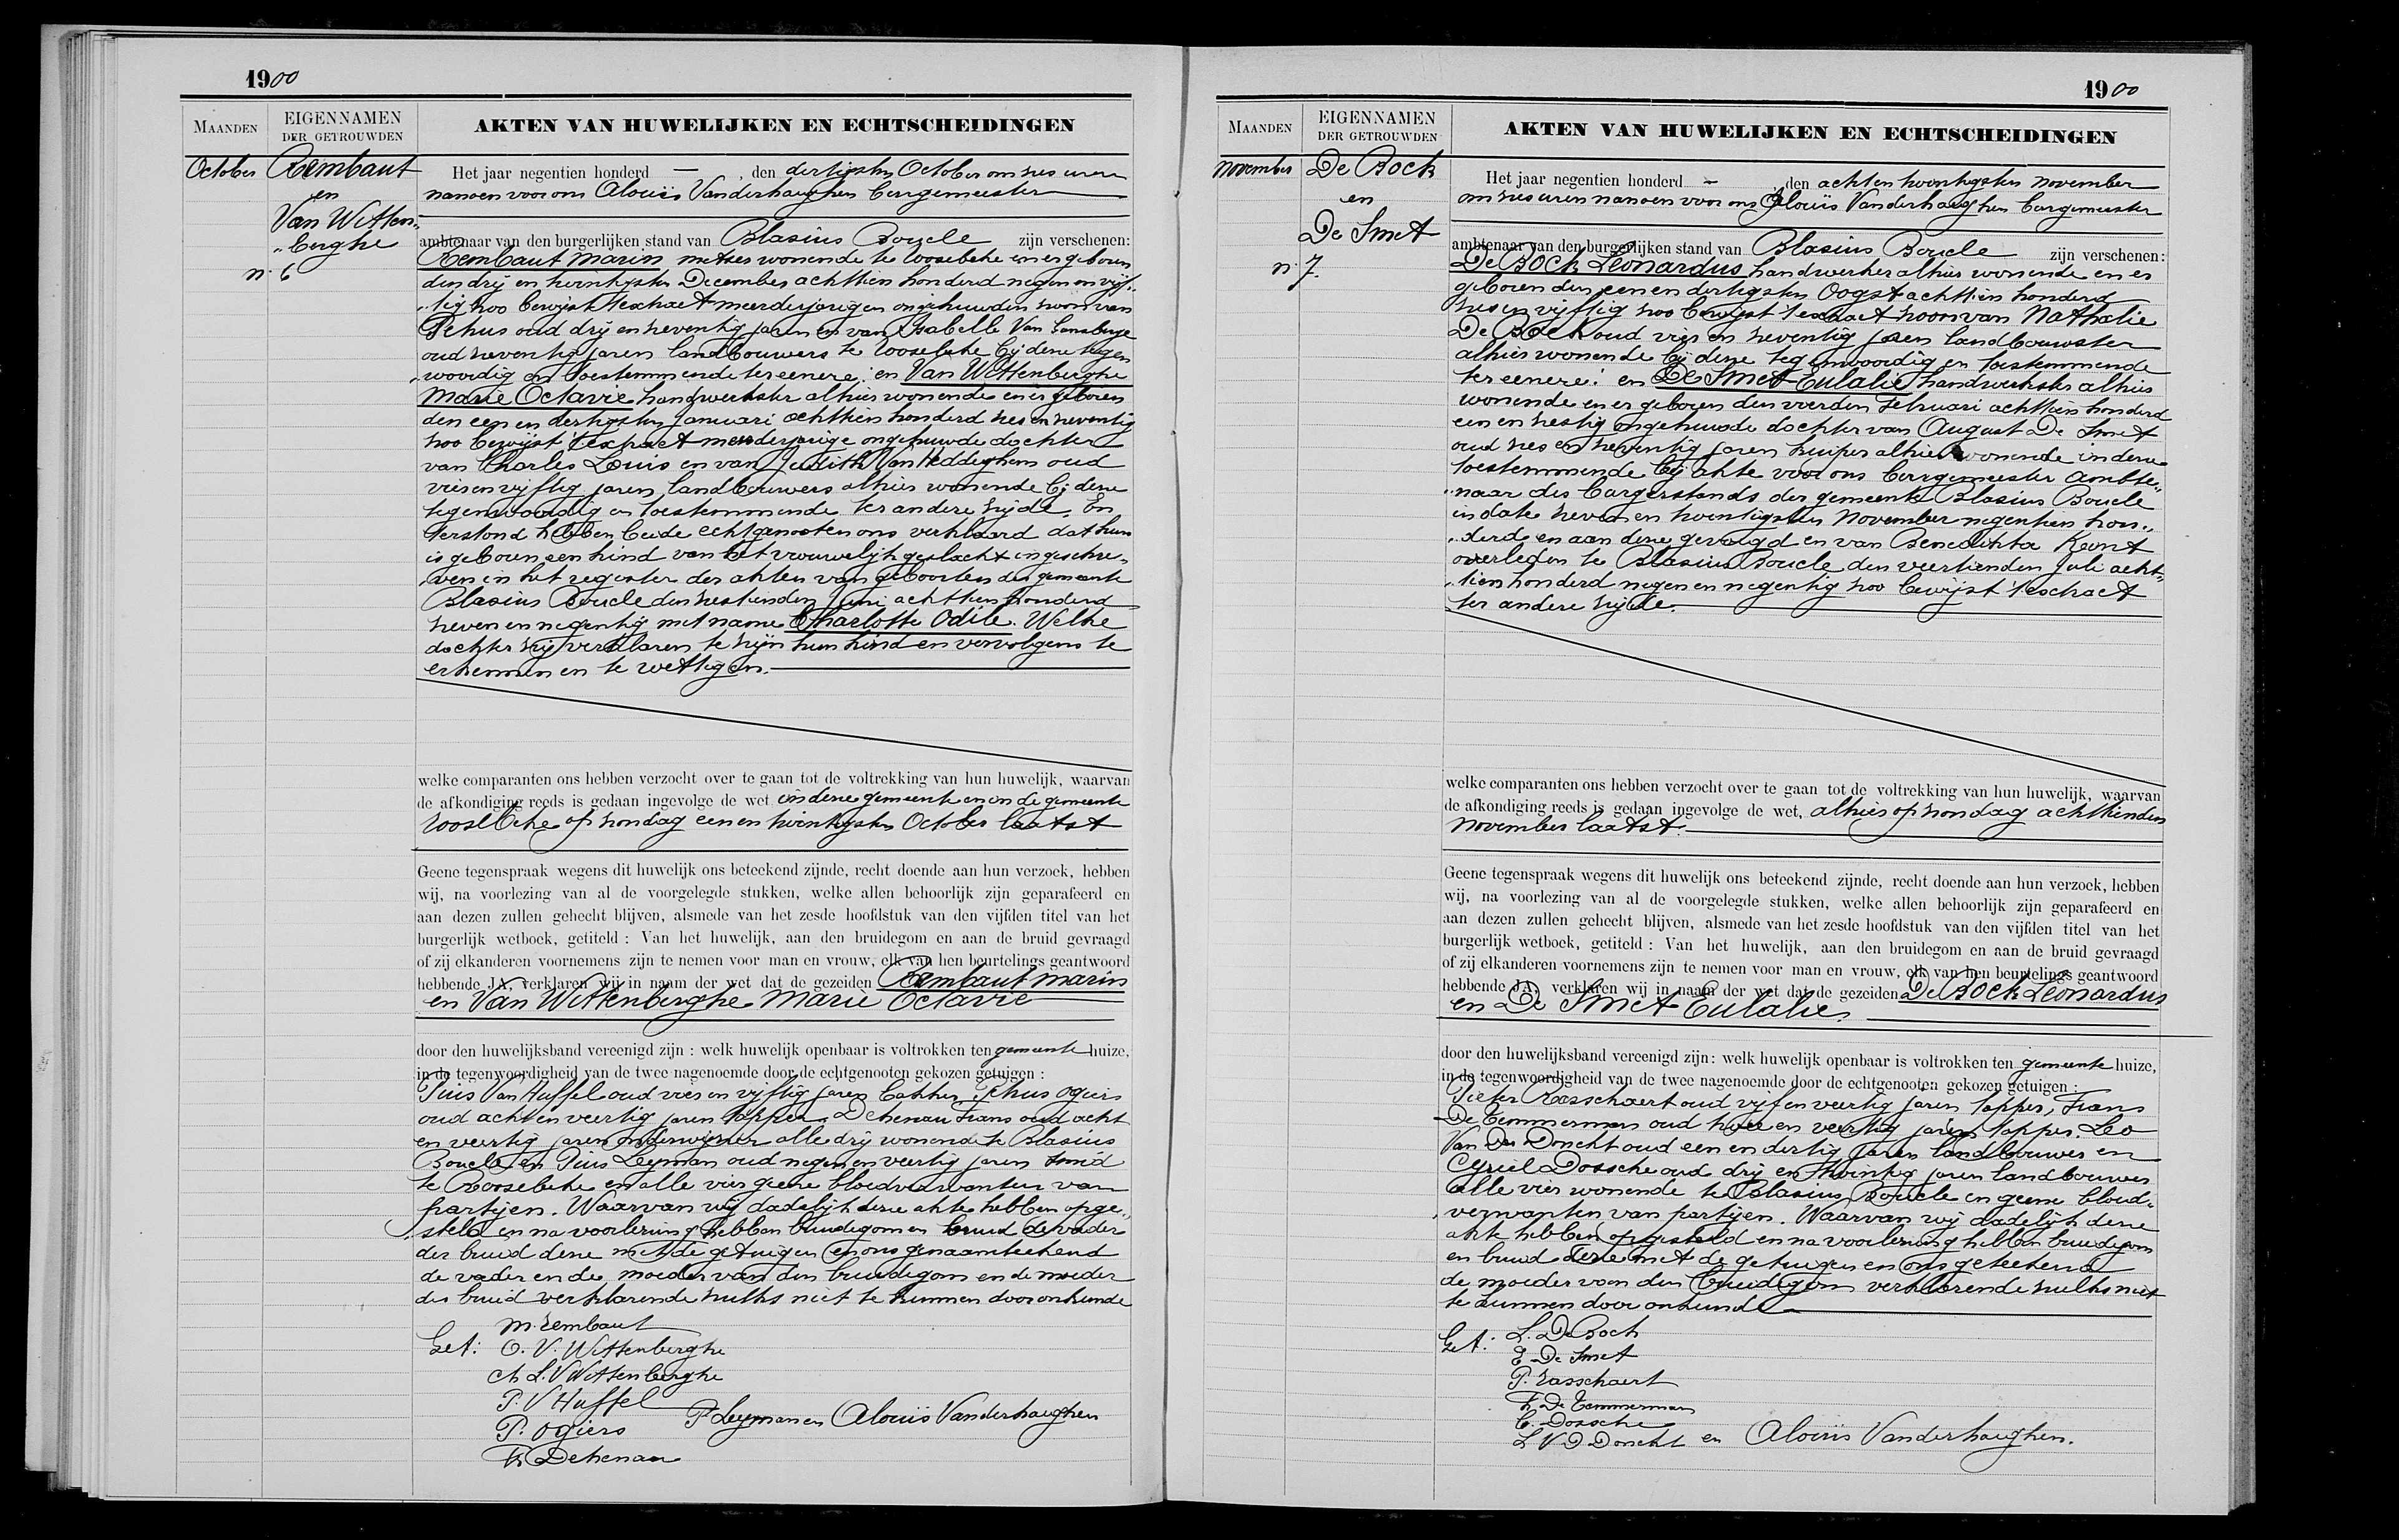 1900
MAANDEN
EIGENNAMEN
DER GETROUWDEN
AKTEN VAN HUWELIJKEN EN ECHTSCHEIDINGEN
October
Rembaut
en
Van Witten„
„berghe
n. 6
Het jaar negentien honderd — , den dertigsten October om zes uren
nanoen voor ons Aloïis Vanderhaeghen burgemeester
ambtenaar van den burgerlijken stand van Blasius Boucle zijn verschenen:
Rembaut Marin metser wonende te Roosebeke en er geboren
den drij en twintigsten December achttien honderd negen en vijf„
„tig zoo bewijst 't extract meerderjarigen ongehuwden zoon van
Petrus oud drij en zeventig jaren en van Isabelle Van Lansberge
oud zeventig jaren landbouwers te Roosebeke bij deze tegen
„woordig en toestemmende ter eenere: en Van Wittenberghe
Marie Octavie handwerkster alhier wonende en er geboren
den een en dertigsten Januari achttien honderd zes en zeventig
zoo bewijst 't extract meerderjarige ongehuwde dochter
van Charles Louis en van Judith Van Heddeghem oud
vier en vijftig jaren landbouwers alhier wonende bij deze
tegenwoordig en toestemmende ter andere zijde. En
terstond hebben beide echtgenooten ons verklaard dat hun
is geboren een kind van het vrouwelijk geslacht ingeschre„
„ven in het register der akten van geboorten der gemeente
Blasius Boucle den zestienden Juni achttien honderd
zeven en negentig met name Charlotte Odile. Welke
dochter zij verklaren te zijn hun kind en vervolgens te
erkennen en te wettigen.
welke comparanten ons hebben verzocht over te gaan tot de voltrekking van hun huwelijk, waarvan
de afkondiging reeds is gedaan ingevolge de wet in deze gemeente en in de gemeente
Roosebeke op zondag een en twintigsten October laatst
Geene tegenspraak wegens dit huwelijk ons beteekend zijnde, recht doende aan hun verzoek, hebben
wij, na voorlezing van al de voorgelegde stukken, welke allen behoorlijk zijn geparafeerd en
aan dezen zullen gehecht blijven, alsmede van het zesde hoofdstuk van den vijfden titel van het
burgerlijk wetboek, getiteld : Van het huwelijk, aan den bruidegom en aan de bruid gevraagd
of zij elkanderen voornemens zijn te nemen voor man en vrouw, elk van hen beurtelings geantwoord
hebbende JA, verklaren wij in naam der wet dat de gezeiden Rembaut Marin
en Van Wittenberghe Marie Octavie
door den huwelijksband vereenigd zijn : welk huwelijk openbaar is voltrokken ten gemeente huize,
in de tegenwoordigheid van de twee nagenoemde door de echtgenooten gekozen getuigen :
Pius Van Huffel oud vier en vijftig jaren bakker, Petrus Ogiers
oud acht en veertig jaren tapper Dekenau Frans oud acht
en veertig jaren onderwijzer alle drij wonende te Blasius
Boucle en Pius Leyman oud negen en veertig jaren smid
te Roosebeke en alle vier geene bloedverwanten van
partijen. Waarvan wij dadelijk deze akte hebben opge„
„steld en na voorlezing hebben bruidegom en bruid de vader
der bruid deze met de getuigen en ons genaamteekend
de vader en de moeder van den bruidegom en de moeder
der bruid verklarende zulks niet te kunnen door onkunde
Get: M. Rembaut
O. V. Wittenberghe
Ch L. V Wittenberghe
P. V Huffel
P. Ogiers
P Leyman en Aloïis Vanderhaeghen
Fr Dekenau
1900
MAANDEN
EIGENNAMEN
DER GETROUWDEN
AKTEN VAN HUWELIJKEN EN ECHTSCHEIDINGEN
November
De Bock
en
De Smet
n. 7.
Het jaar negentien honderd - , den acht en twintigsten November
om zes uren nanoen voor ons Aloïis Vanderhaeghen burgemeester
ambtenaar van den burgerlijken stand van Blasius Boucle zijn verschenen:
De Bock Leonardus handwerker alhier wonende en er
geboren den een en dertigsten Oogst achttien honderd
zes en vijftig zoo bewijst 't extract zoon van Nathalie
De Bock oud vier en zeventig jaren landbouwster
alhier wonende bij deze tegenwoordig en toestemmende
ter eenere: en De Smet Eulalie handwerkster alhier
wonende en er geboren den vierden Februari achttien honderd
een en zestig ongehuwde dochter van August De Smet
oud zes en zeventig jaren kuiper alhier wonende in deze
toestemmende bij akte voor ons burgemeester ambte„
„naar des burgerstands der gemeente Blasius Boucle
in date zeven en twintigsten November negentien hon„
„derd en aan deze gevoegd en van Benedikta Keont
overleden te Blasius Boucle den veertienden Juli acht„
„tien honderd negen en negentig zoo bewijst 't extract
ter andere zijde.
welke comparanten ons hebben verzocht over te gaan tot de voltrekking van hun huwelijk, waarvan
de afkondiging reeds is gedaan ingevolge de wet, alhier op zondag achttienden
November laatst.
Geene tegenspraak wegens dit huwelijk ons beteekend zijnde, recht doende aan hun verzoek, hebben
wij, na voorlezing van al de voorgelegde stukken, welke allen behoorlijk zijn geparafeerd en
aan dezen zullen gehecht blijven, alsmede van het zesde hoofdstuk van den vijfden titel van het
burgerlijk wetboek, getiteld : Van het huwelijk, aan den bruidegom en aan de bruid gevraagd
of zij elkanderen voornemens zijn te nemen voor man en vrouw, elk van hen beurtelings geantwoord
hebbende JA, verklaren wij in naam der wet dat de gezeiden De Bock Leonardus
en De Smet Eulalie.
door den huwelijksband vereenigd zijn: welk huwelijk openbaar is voltrokken ten gemeente huize,
in de tegenwoordigheid van de twee nagenoemde door de echtgenooten gekozen getuigen :
Pieter Rasschaert oud vijf en veertig jaren tapper, Frans
De Temmerman oud twee en veertig jaren tapper. Leo
Van Der Donckt oud een en dertig jaren landbouwer en
Cyriel Dossche oud drij en twintig jaren landbouwer
alle vier wonende te Blasius Boucle en geene bloed„
„verwanten van partijen. Waarvan wij dadelijk deze
akte hebben opgesteld en na voorlezing hebben bruidegom
en bruid deze met de getuigen en ons geteekend
de moeder van den bruidegom verklarende zulks niet
te kunnen door onkunde
Get: L. De Bock
E De Smet
P. Rasschaert
Fr De Temmerman
C. Dossche
L V D Donckt en Aloïis Vanderhaeghen.